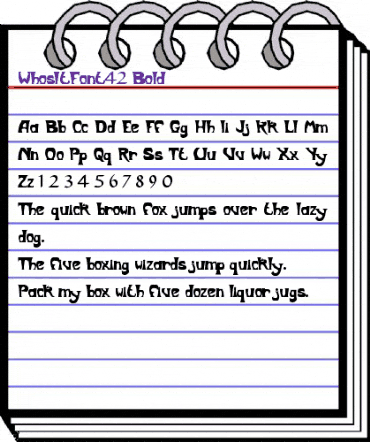 WhosItFont42 Bold
Aa Bb Cc Dd Ee Ff Gg Hh Ii Jj Kk Ll Mm
Nn Oo Pp Qq Rr Ss Tt Uu Vv Ww Xx Yy
Zz 1 2 3 4 5 6 7 8 9 0
The quick brown fox jumps over the lazy
dog.
The five boxing wizards jump quickly.
Pack my box with five dozen liquor jugs.